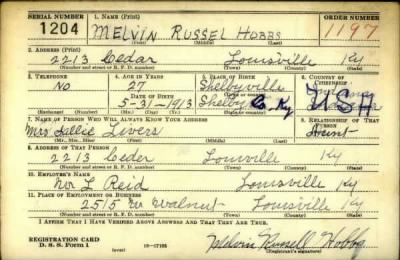 SERIAL NUMBER 1. NAME (Print) ORDER NUMBER
1204 MELVIN RUSSEL HOBBS 1197
(First) (Middle) (Last)
2. ADDRESS (Print)
2213 Cedar Louisville Ky
(Number and street or R. F. D. number) (Town) (County) (State)
3. TELEPHONE 4. AGE IN YEARS 5. PLACE OF BIRTH 6. COUNTRY OF CITIZENSHIP
No 27 Shelbyville
DATE OF BIRTH
5-31-1913 Shelby Co. Ky USA
(Mo.) (Day) (Yr.) (State or country)
7. NAME OF PERSON WHO WILL ALWAYS KNOW YOUR ADDRESS 8. RELATIONSHIP OF THAT PERSON
Mrs Sallie Livers Aunt
(Mr., Mrs., Miss) (First) (Middle) (Last)
9. ADDRESS OF THAT PERSON
2213 Ceder Louville Ky
(Number and street or R. F. D. number) (Town) (County) (State)
10. EMPLOYER'S NAME
Mr L Reid Louisville Ky
11. PLACE OF EMPLOYMENT OR BUSINESS
2515 W Walnut Louisville Ky
(Number and street or R. F. D. number) (Town) (County) (State)
I AFFIRM THAT I HAVE VERIFIED ABOVE ANSWERS AND THAT THEY ARE TRUE.
REGISTRATION CARD
D. S. S. Form 1 (over) 16-17105 Melvin Russell Hobbs
(Registrant's signature)